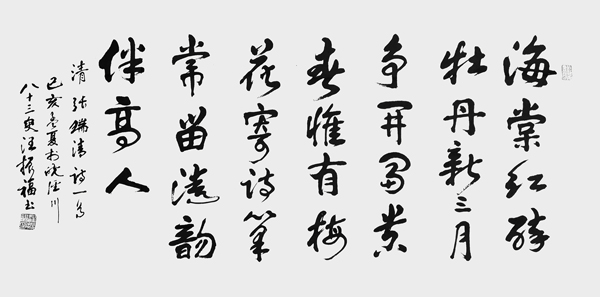 海棠红醉
牡丹新三月
争开富贵
春惟有梅
花寄诗笔
常留韵
伴高人
清 张瑞清诗一首
己亥孟夏於皖川
八十三叟汪振福书